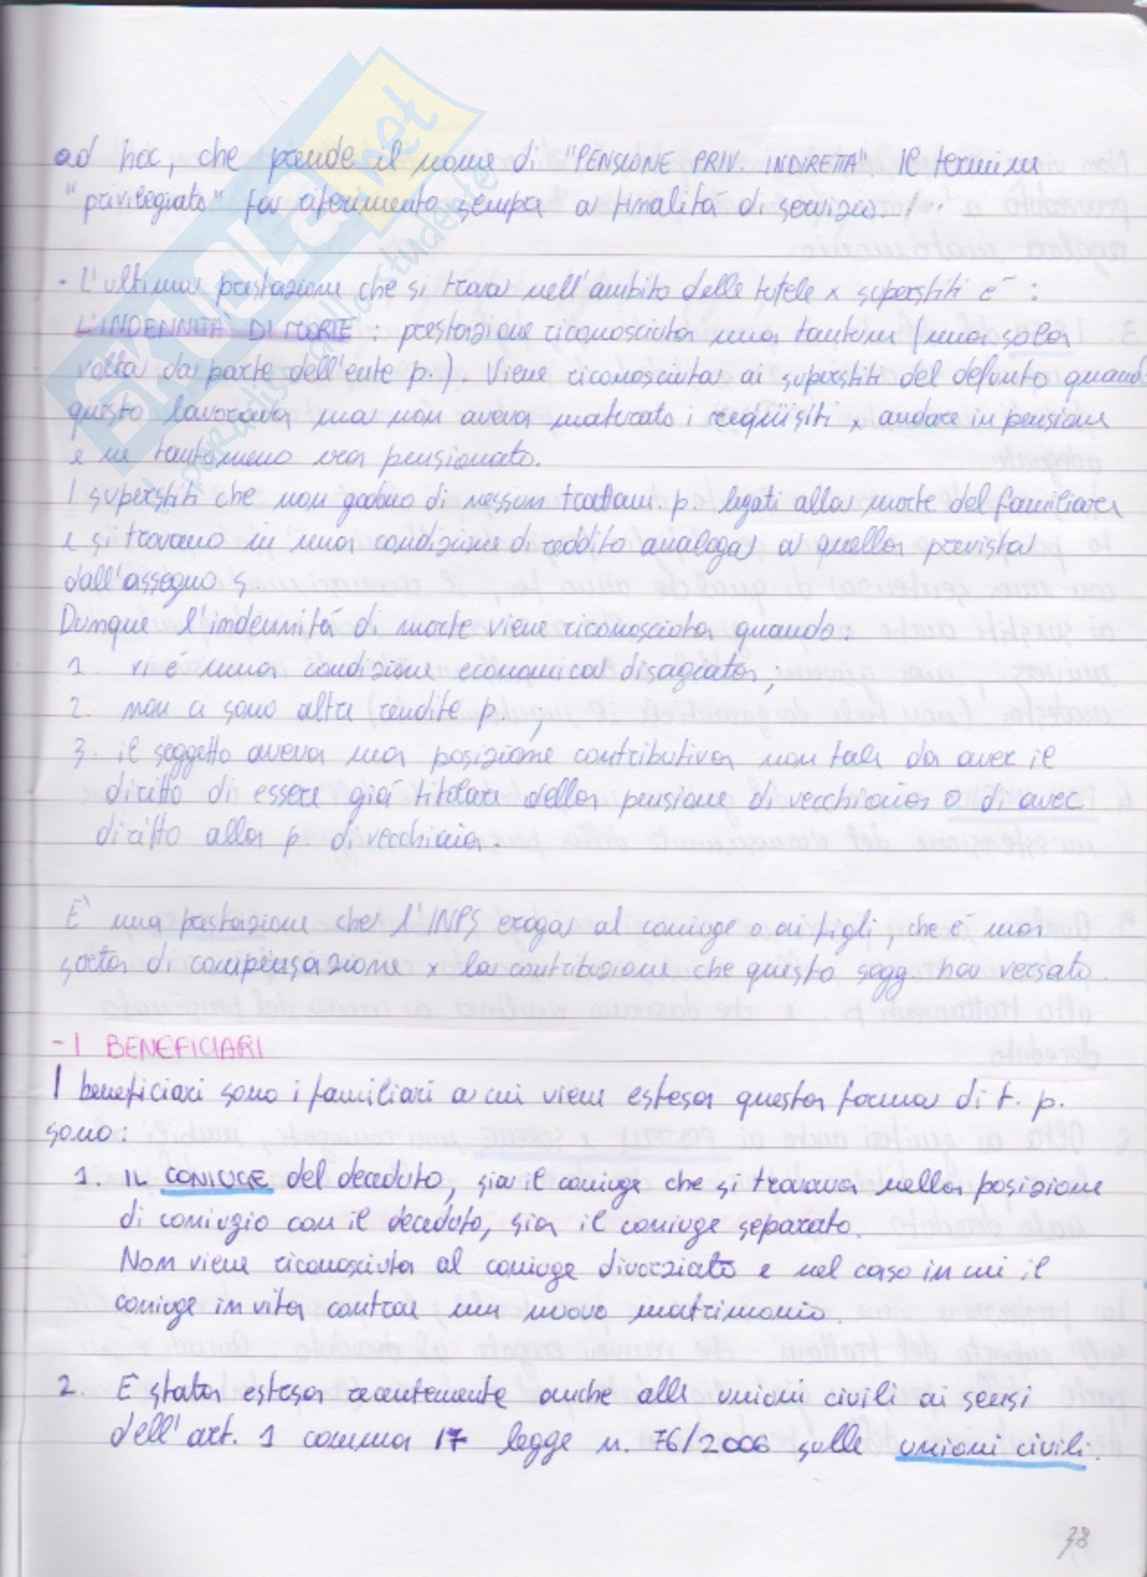 ad hoc, che prende il nome di "PENSIONE PRIV. INDIRETTA". Il termine
"privilegiato" fa riferimento sempre a finalità di servizio.
- L'ultima prestazione che si trova nell'ambito delle tutele x superstiti è :
L'INDENNITÀ DI MORTE : prestazione riconosciuta una tantum (una sola
volta da parte dell'ente p.). Viene riconosciuta ai superstiti del defunto quando
questo lavorava ma non aveva maturato i requisiti x andare in pensione
e ne tantomeno era pensionato.
I superstiti che non godono di nessun trattam. p. legati alla morte del familiare
e si trovano in una condizione di reddito analoga a quella prevista
dall'assegno s.
Dunque l'indennità di morte viene riconosciuta quando:
1. vi è una condizione economica disagiata;
2. non ci sono altre rendite p. ;
3. il soggetto aveva una posizione contributiva non tale da aver il
diritto di essere già titolare della pensione di vecchiaia o di aver
diritto alla p. di vecchiaia.
È una prestazione che l'INPS eroga al coniuge o ai figli, che è una
sorta di compensazione x la contribuzione che questo sogg ha versato.
- I BENEFICIARI
I beneficiari sono i familiari a cui viene estesa questa forma di t. p.
sono:
1. IL CONIUGE del deceduto, sia il coniuge che si trovava nella posizione
di coniugio con il deceduto, sia il coniuge separato.
Non viene riconosciuta al coniuge divorziato e nel caso in cui il
coniuge in vita contrae un nuovo matrimonio.
2. È stata estesa recentemente anche alle unioni civili ai sensi
dell'art. 1 comma 17 legge n. 76/2006 sulle unioni civili.
38
SKUOLA.net